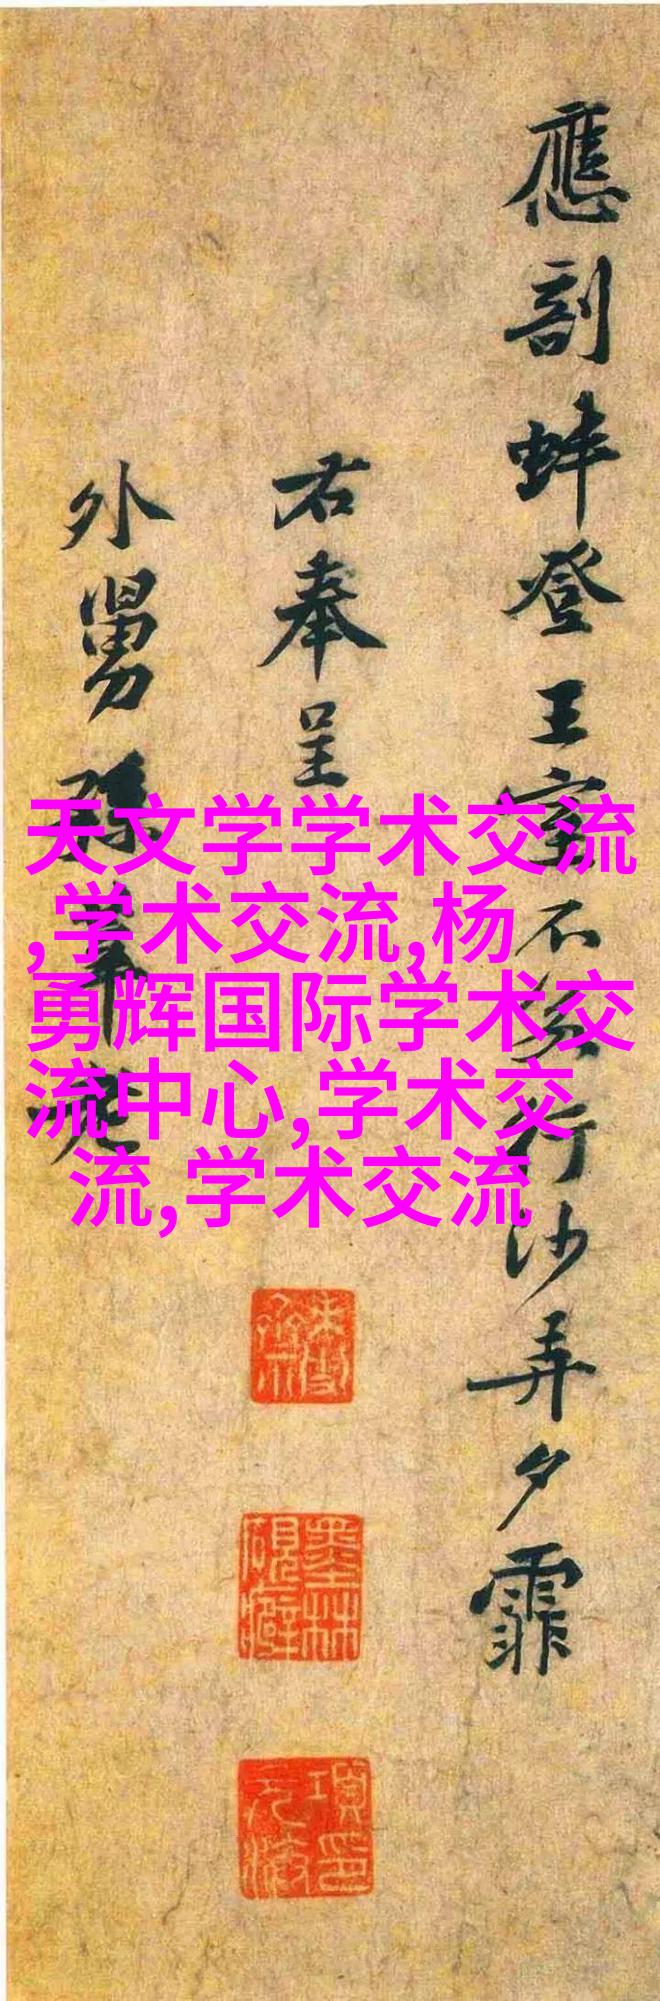 應剖蚌登王室不贫行沙弄夕霏
右奉呈
外舅
天文学学术交流
,学术交流,杨
勇辉国际学术交
流中心,学术交
流,学术交流
墨林
項